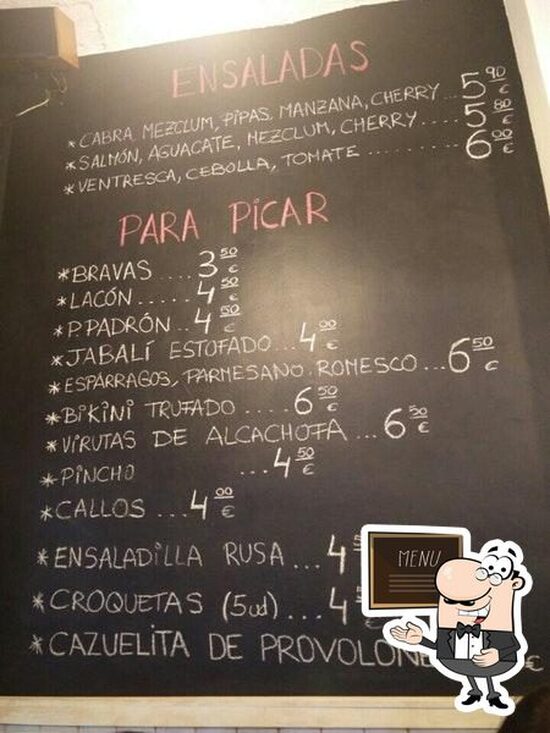 ENSALADAS
* CABRA, MEZCLUM, PIPAS, MANZANA, CHERRY ... 5,90 €
* SALMÓN, AGUACATE, MEZCLUM, CHERRY .... 5,80 €
* VENTRESCA, CEBOLLA, TOMATE ......... 6,00 €
PARA PICAR
* BRAVAS .... 3,50 €
* LACÓN ..... 4,50 €
* P. PADRÓN .. 4,50 €
* JABALÍ ESTOFADO ... 4,00 €
* ESPÁRRAGOS, PARMESANO, ROMESCO ... 6,50 €
* BIKINI TRUFADO .... 6,50 €
* VIRUTAS DE ALCACHOFA ... 6,50 €
* PINCHO ... 4,50 €
* CALLOS ... 4,00 €
* ENSALADILLA RUSA ... 4
MENU
* CROQUETAS (5ud) ... 4
* CAZUELITA DE PROVOLONE €